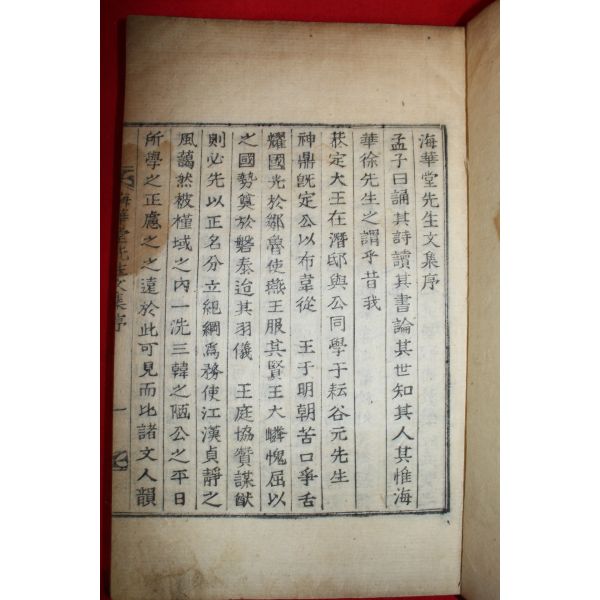 海華堂先生文集序
孟子曰誦其詩讀其書論其世知其人其惟海
華徐先生之謂乎昔我
莊定大王在潛邸與公同學于耘谷元先生
神鼎旣定公以布韋從 王于明朝苦口爭舌
耀國光於鄒魯使燕王服其賢王大憐愧屈以
之國勢奠於磐泰迨其羽儀 王庭協贊謀猷
則必先以正名分立紀綱爲務使江漢貞靜之
風藹然被槿域之內一洗三韓之陋公之平日
所學之正慮之之遠於此可見而比諸文人韻
海華堂先生文集序 一